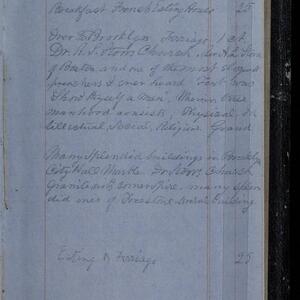 Breakfast French Eating House 25
Over to Brooklyn Ferriage 1 ct
Dr. R. S. Storrs Church
of Boston and one of the most eloquent
preachers I ever heard Text was
Show thyself a man, Wherein true
manhood consists, Physical, In
tellectual, Social, Religious Grand
Many splendid buildings in Brooklyn
City Hall Marble Dr Storrs Church
Granite with spire, many splen
did ones of Freestone
Eating & Ferriage 25